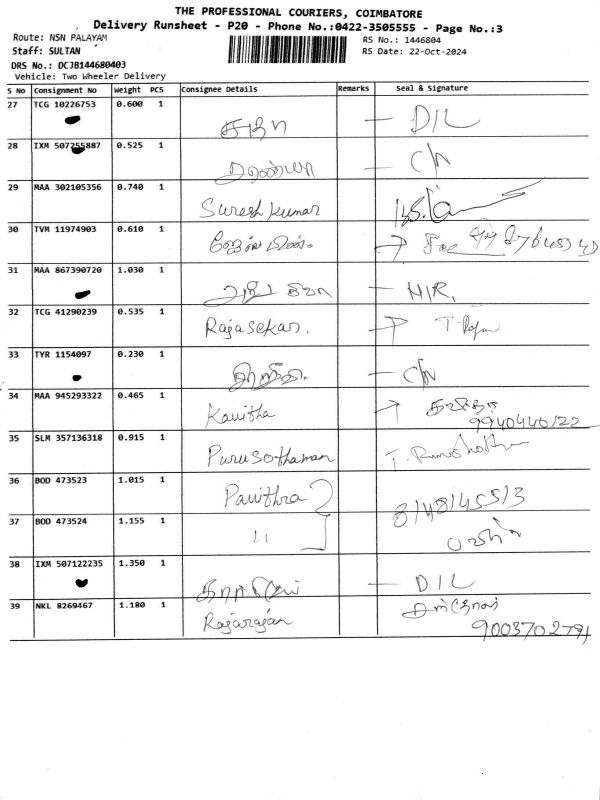 THE PROFESSIONAL COURIERS, COIMBATORE
Delivery Runsheet - P20 - Phone No.:0422-3505555 - Page No.:3
Route: NSN PALAYAM
RS No.: 1446804
Staff: SULTAN
RS Date: 22-Oct-2024
DRS No.: DCJB144680403
Vehicle: Two Wheeler Delivery
S No Consignment No Weight PCS Consignee Details Remarks Seal & Signature
27 TCG 10226753 0.600 1 சுதா — D/L
28 IXM 507255887 0.525 1 சரண்யா — C/N
29 MAA 302105356 0.740 1 Suresh kumar
30 TVM 11974903 0.610 1
31 MAA 867390720 1.030 1 — N/R.
32 TCG 41290239 0.535 1 Rajasekar. → T. Raja
33 TYR 1154097 0.230 1 — C/N
34 MAA 945293322 0.465 1 Kavitha → கவிதா
9940440122
35 SLM 357136318 0.915 1 Purusothaman
36 BOD 473523 1.015 1 Pavithra 8/48/455/3
37 BOD 473524 1.155 1 11
38 IXM 507122235 1.350 1 — D/L
39 NKL 8269467 1.180 1 Rajarajan
9003702791